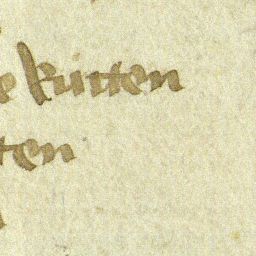 e kutten
ten